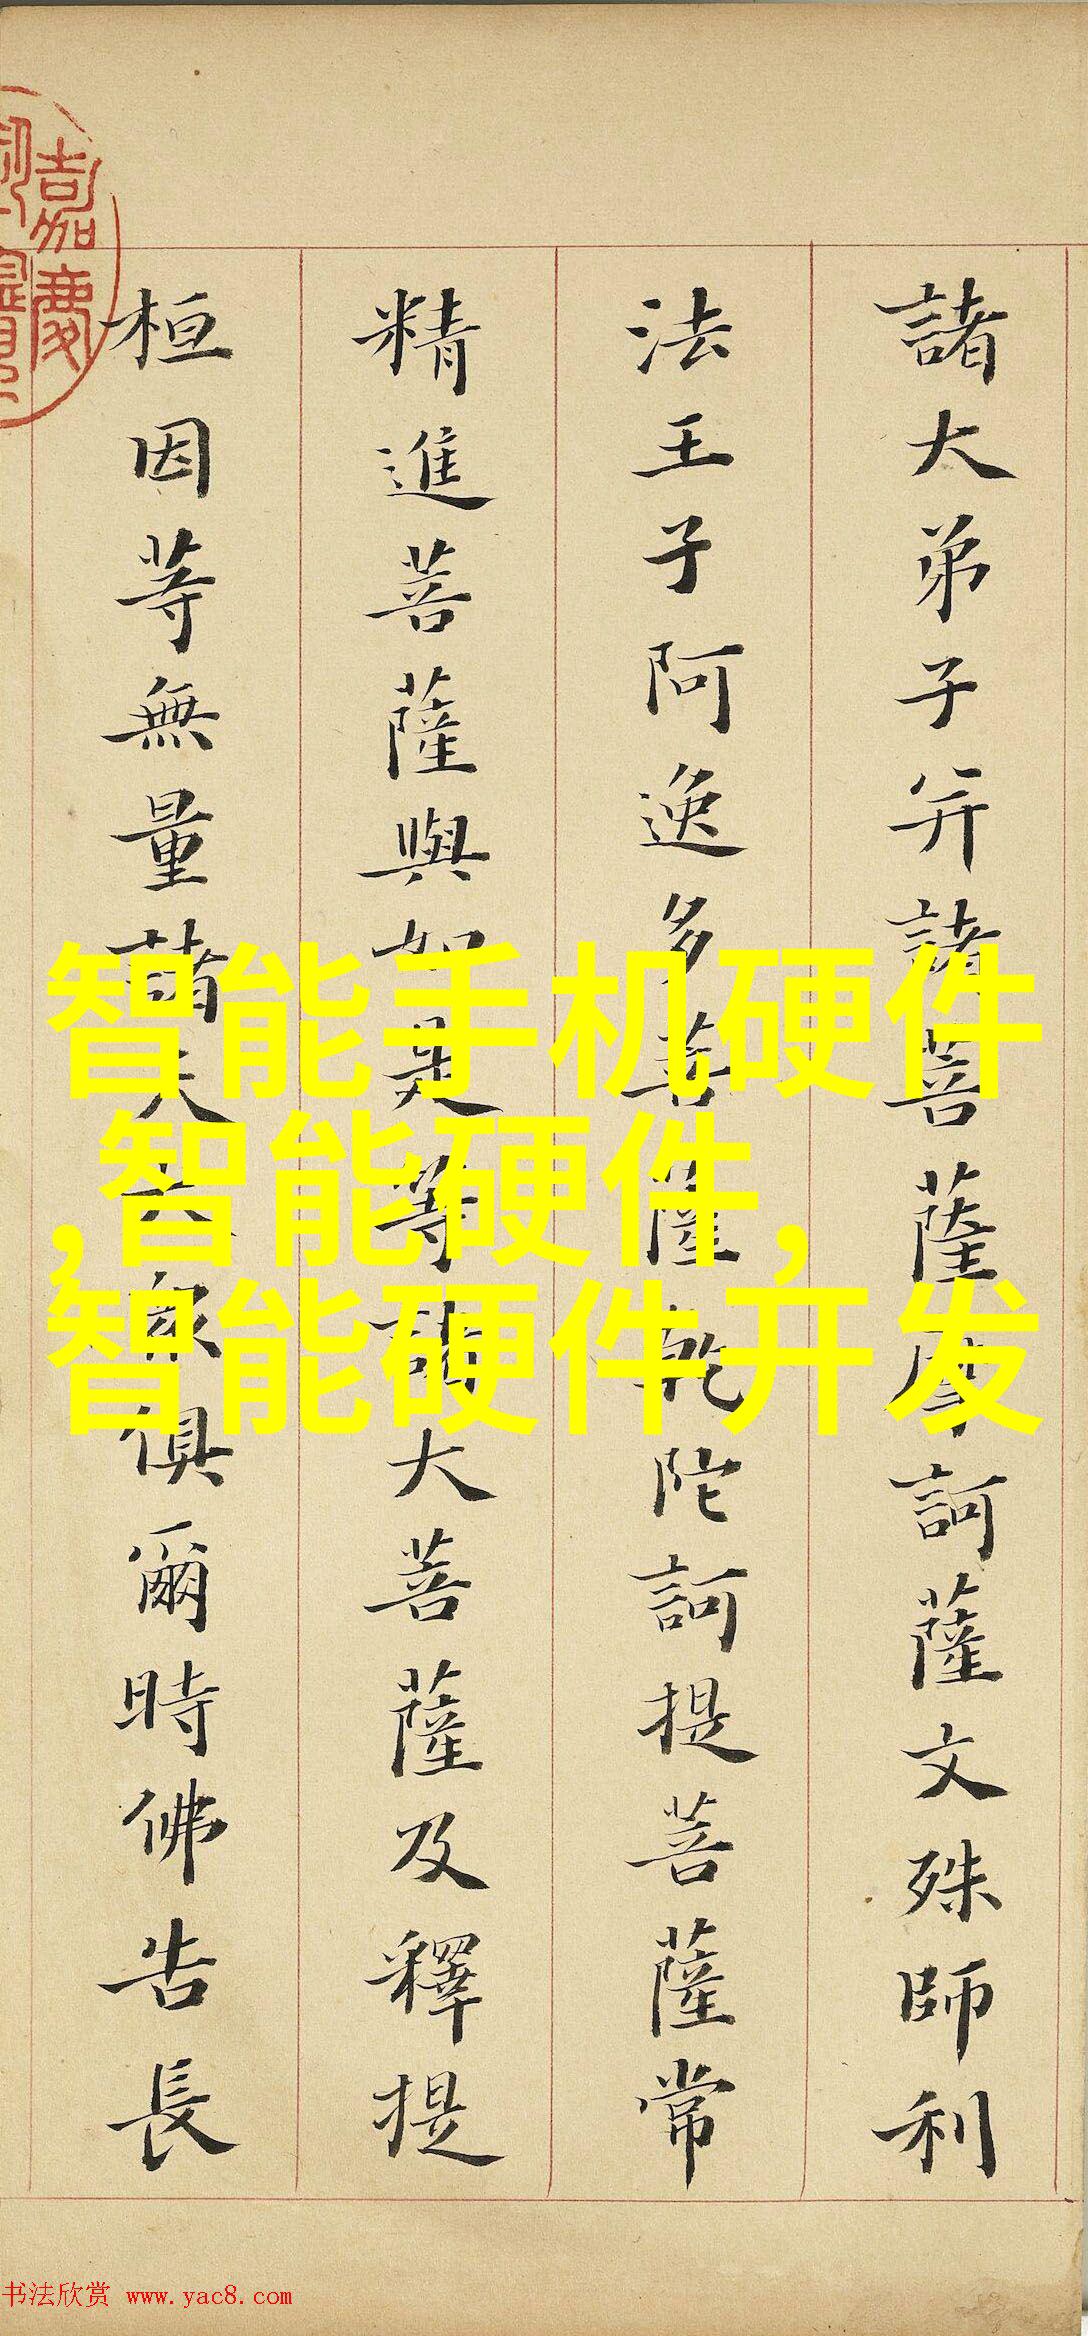 諸大弟子并諸菩薩摩訶薩文殊師利
法王子阿逸多菩薩乾陀訶提菩薩常
精進菩薩與如是等諸大菩薩及釋提
桓因等無量諸天大眾俱爾時佛告長
嘉慶
智能手机硬件
,智能硬件,
智能硬件开发
书法欣赏 www.yac8.com